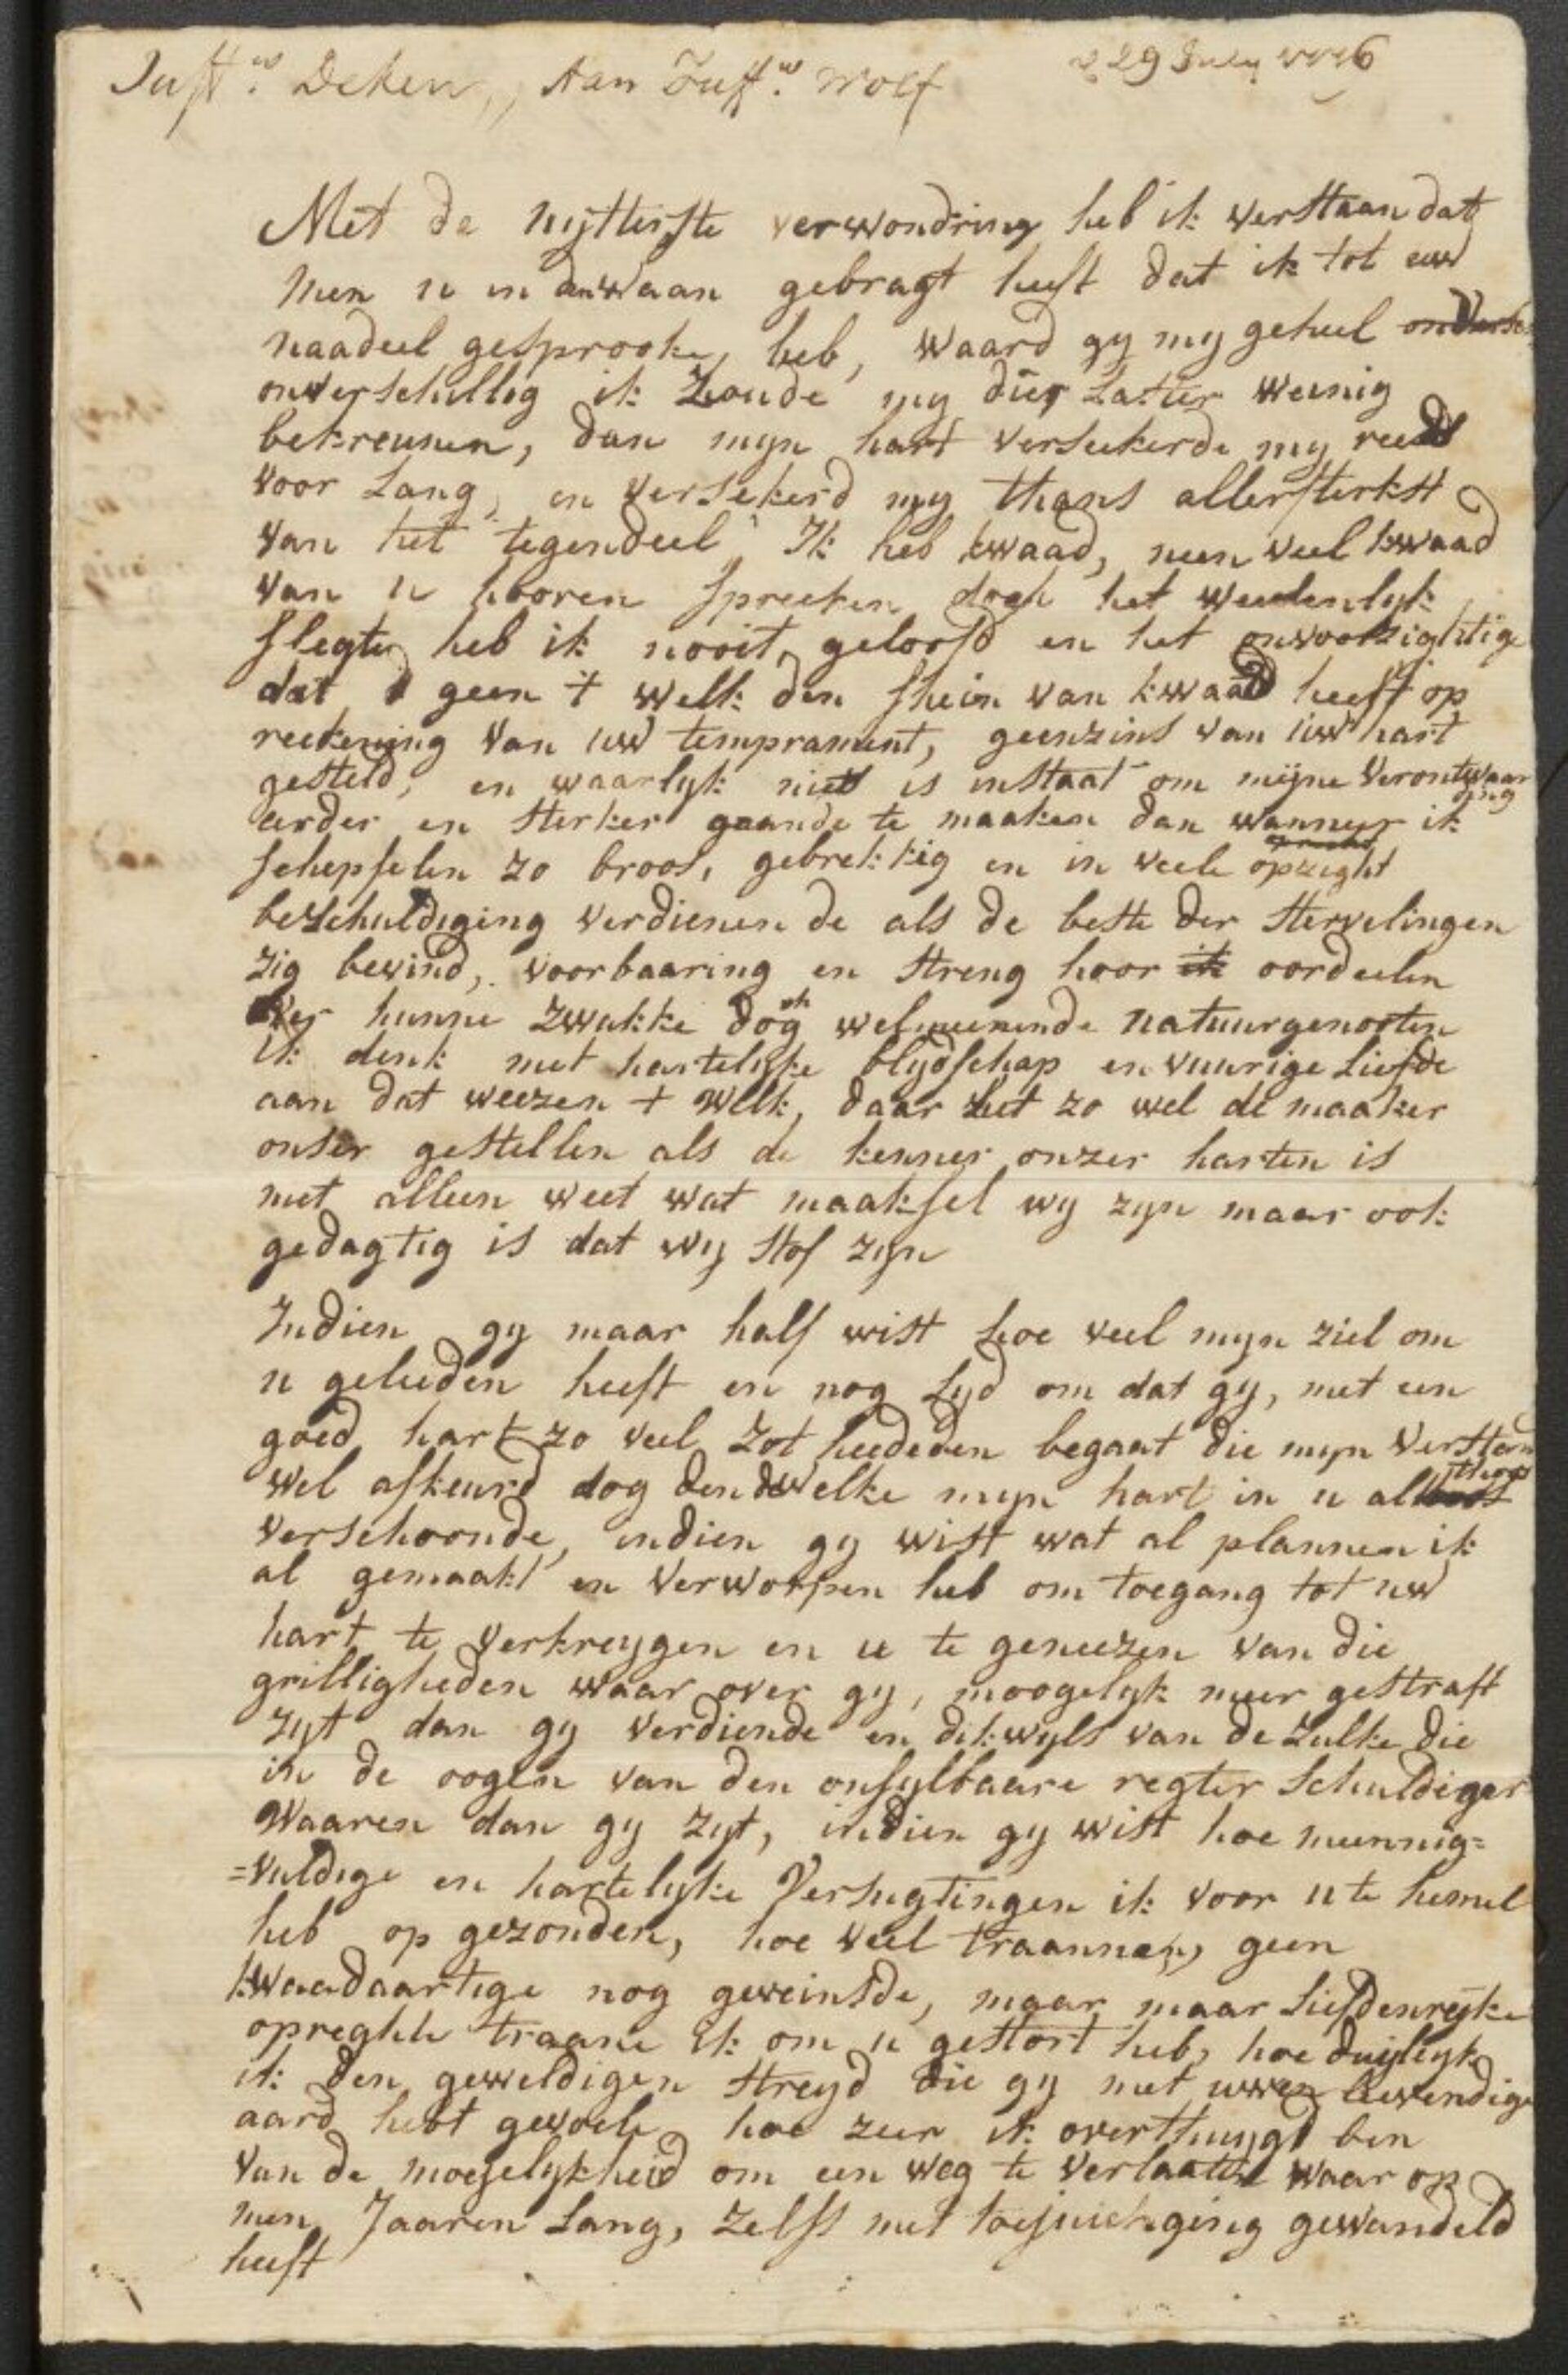 Juffw. Deken, Aan Juffw. Wolf 29 July 1776
Met de uijtterste verwondring heb ik verstaan dat
men u in den waan gebragt heeft dat ik tot uw
naadeel gesprooke, heb, waard gy my geheel
onverschillig ik zoude my dier laster weinig
bekreunen, dan myn hart verseekerde my reeds
voor lang, en versekerd my thans allersterkst
van het tegendeel, Ik heb kwaad, neen veel kwaad
van u hooren spreeken doch het weedenlyk
slegte heb ik nooit geloofd en het onvoorzightige
dat geen t welk den schein van kwaad heeft op
reekening van uw temprament, geenzins van uw hart
gesteld, en waarlyk niets is instaat om mijne verontwaar
ding
eerder en sterker gaande te maaken dan wanneer ik
schepselen zo broos, gebrekkig en in veele opzight
beschuldiging verdienen de als de beste der stervelingen
zig bevind, voorbaaring en streng hoor ik oordeelen
over hunne zwakke dog ook welmeenende natuurgenooten
ik denk met hartelyke blydschap en vuurige Liefde
aan dat weezen t welk, daar het zo wel de maaker
onser gestellen als de kenner onzer harten is
niet alleen weet wat maaksel wy zyn maar ook
gedagtig is dat wy stof zyn
Indien gy maar half wist hoe veel myn ziel om
u geleeden heeft en nog Lyd om dat gy, met een
goed hart zo veel zot heededen begaat die myn verstand
wel afkeurd dog dendewelke myn hart in u althoos
verschoonde, indien gy wist wat al plannen ik
al gemaakt en verworpen heb om toegang tot uw
hart te verkreygen en u te geneezen van die
grilligheden waar over gy, moogelyk meer gestraft
zyt dan gy verdiende en dikwyls van de zulke die
in de oogen van den onfylbaare regter schuldiger
waaren dan gy zyt, indien gy wist hoe meennig=
=vuldige en hartelyke Versugtingen ik voor u te hemel
heb op gezonden, hoe veel traannen, geen
kwaadaartige nog geveinsde, maar maar Liefdenryke
opreghte traane ik om u gestort heb, hoe duijlyk
ik den geweldigen streyd die gy met uwen leevendige
aard hebt gevoele hoe zeer ik overthuygd ben
van de moeyelykheid om een weg te verlaaten waar op
men Jaaren Lang, zelfs met toejuichging gewandeld
heeft